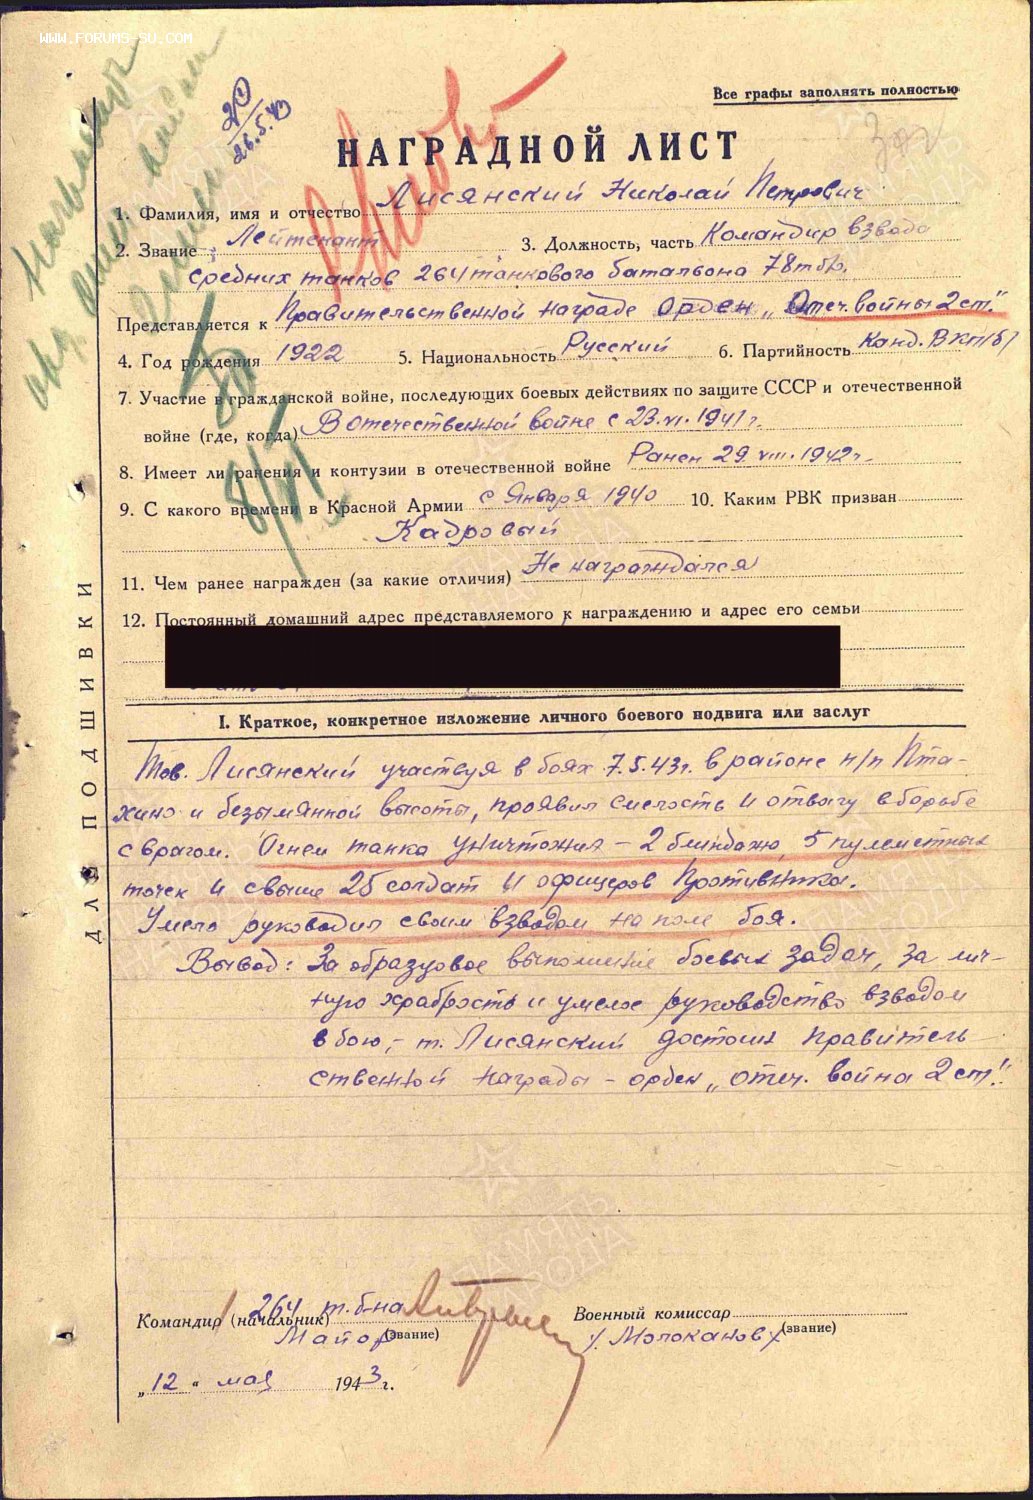 WWW.FORUMS-SU.COM
26.5.43
Все графы заполнять полностью
НАГРАДНОЙ ЛИСТ
1. Фамилия, имя и отчество Лисянский Николай Петрович
2. Звание Лейтенант 3. Должность, часть Командир взвода
средних танков 264 танкового батальона 78 тбр.
Представляется к Правительственной награде орден „Отеч. войны 2 ст."
4. Год рождения 1922 5. Национальность Русский 6. Партийность Канд. ВКП(б)
7. Участие в гражданской войне, последующих боевых действиях по защите СССР и отечественной
войне (где, когда) В отечественной войне с 23.VI.1941 г.
8. Имеет ли ранения и контузии в отечественной войне Ранен 29.VIII.1942 г.
9. С какого времени в Красной Армии с Января 1940 10. Каким РВК призван
Кадровый
11. Чем ранее награжден (за какие отличия) Не награждался
12. Постоянный домашний адрес представляемого к награждению и адрес его семьи
I. Краткое, конкретное изложение личного боевого подвига или заслуг
Тов. Лисянский участвуя в боях 7.5.43 г. в районе н/п Пта-
хино и безымянной высоты, проявил смелость и отвагу в борьбе
с врагом. Огнем танка уничтожил - 2 блиндажа, 5 пулеметных
точек и свыше 25 солдат и офицеров противника.
Умело руководил своим взводом на поле боя.
Вывод: За образцовое выполнение боевых задач, за лич-
ную храбрость и умелое руководство взводом
в бою, - т. Лисянский достоин правитель-
ственной награды - орден „Отеч. война 2 ст".
Командир (начальник) 264 т. б-на Военный комиссар
Майор (звание) Молоканов (звание)
„12" мая 1943 г.
ДЛЯ ПОДШИВКИ
ПАМЯТЬ НАРОДА